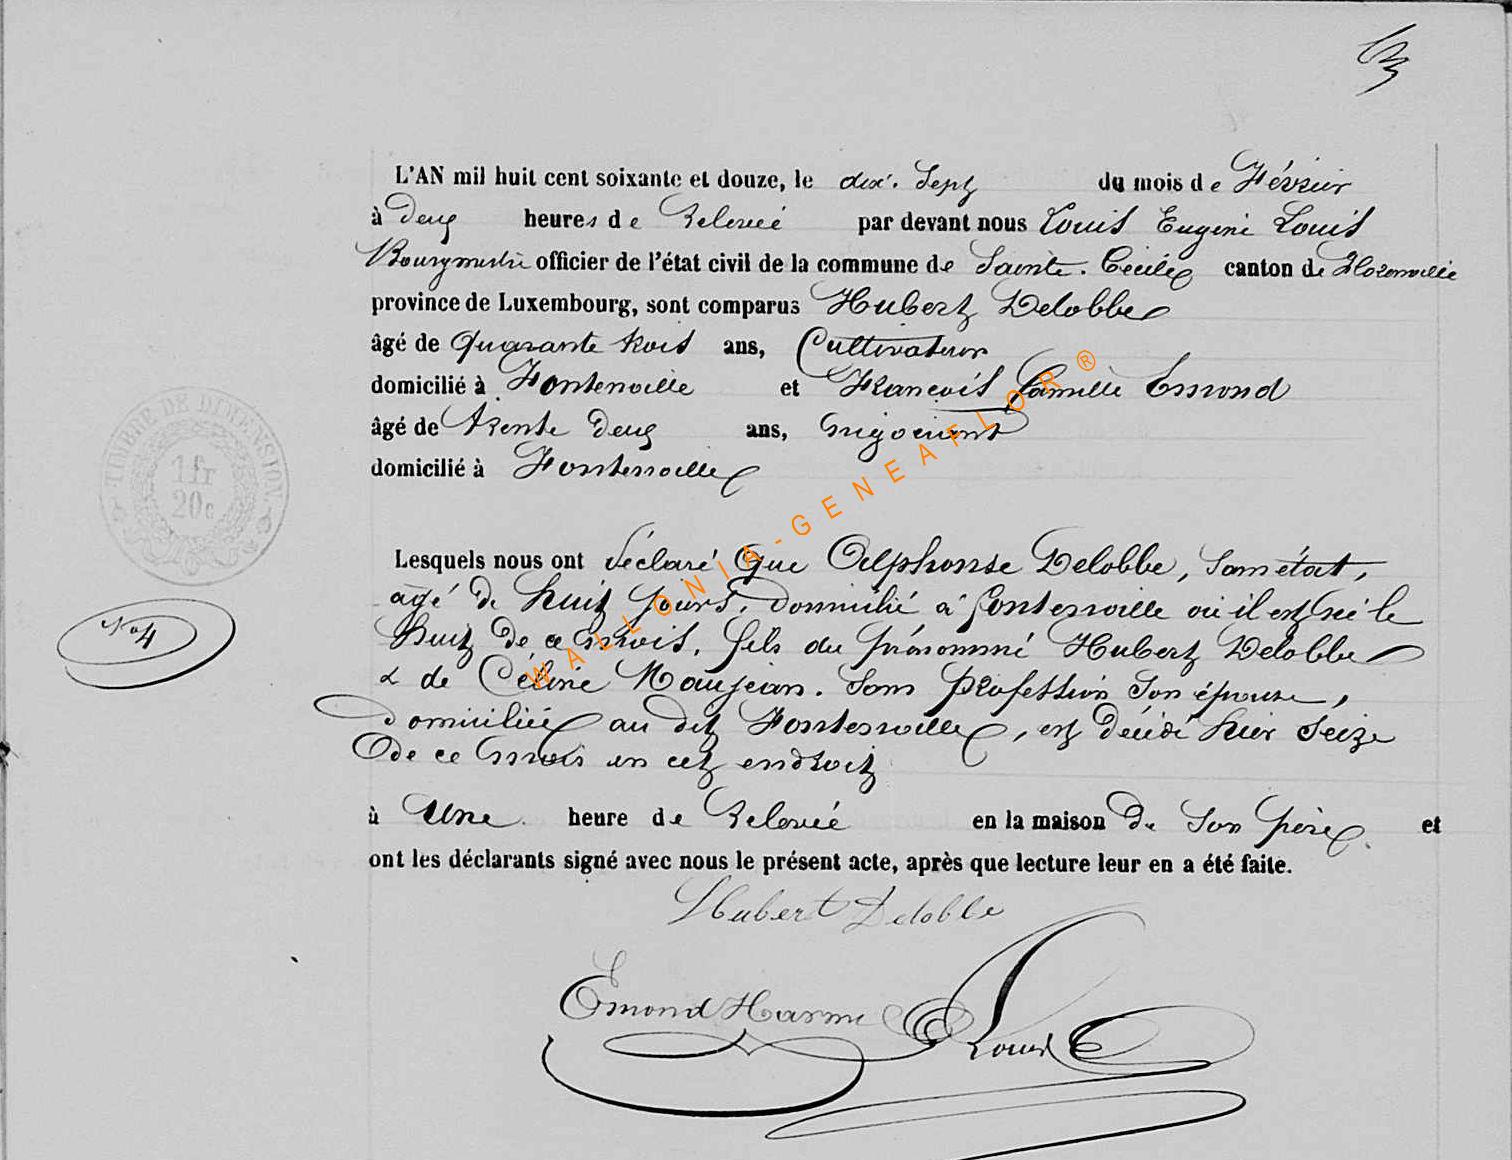 L'AN mil huit cent soixante et douze, le dix. Sept du mois de Février
à Deux heures de Relevée par devant nous Louis Eugène Louis
Bourgmestre officier de l'état civil de la commune de Sainte. Cécile canton de Florenville
province de Luxembourg, sont comparus Hubert Delobbe
âgé de Quarante trois ans, Cultivateur
domicilié à Fontenoille et François Camille Emond
âgé de trente Deux ans, négociant
domicilié à Fontenoille
TIMBRE DE DIMENSION.
1 fr
20c
Lesquels nous ont déclaré Que Alphonse Delobbe, Sans état,
agé de huit jours, domicilié à fontenoille où il est né le
N° 4
huit de ce mois, fils du prénommé Hubert Delobbe
& de Céline Maujean. Sans Profession Son épouse,
domiciliée au dit Fontenoille, est Décédé hier Seize
de ce mois en cet endroit
à une heure de Relevée en la maison de Son père et
ont les déclarants signé avec nous le présent acte, après que lecture leur en a été faite.
Hubert Delobbe
Emond
Louis
WALLONIA-GENEAFLOR®